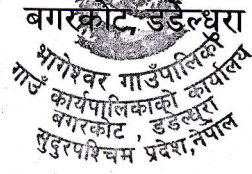 बगरकोट, डडेल्धुरा
भागेश्वर गाउँपालिका
गाउँ कार्यपालिकाको कार्यालय
बगरकोट, डडेल्धुरा
सुदुरपश्चिम प्रदेश, नेपाल